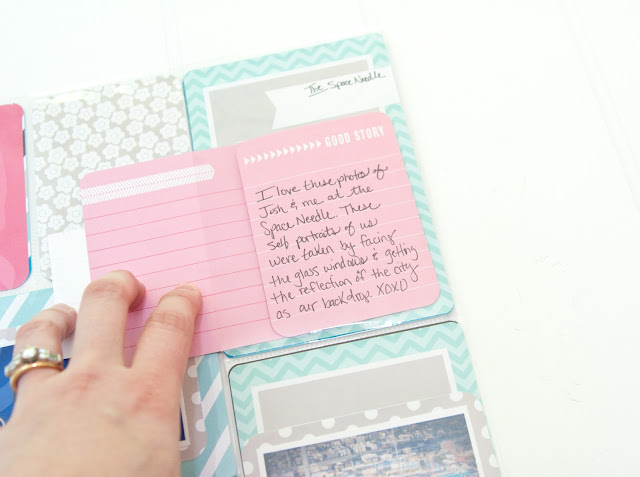 The Space Needle
GOOD STORY
I love these photos of
Josh & me at the
Space Needle. These
self portraits of us
were taken by facing
the glass windows & getting
the reflection of the city
as our backdrop. XOXO